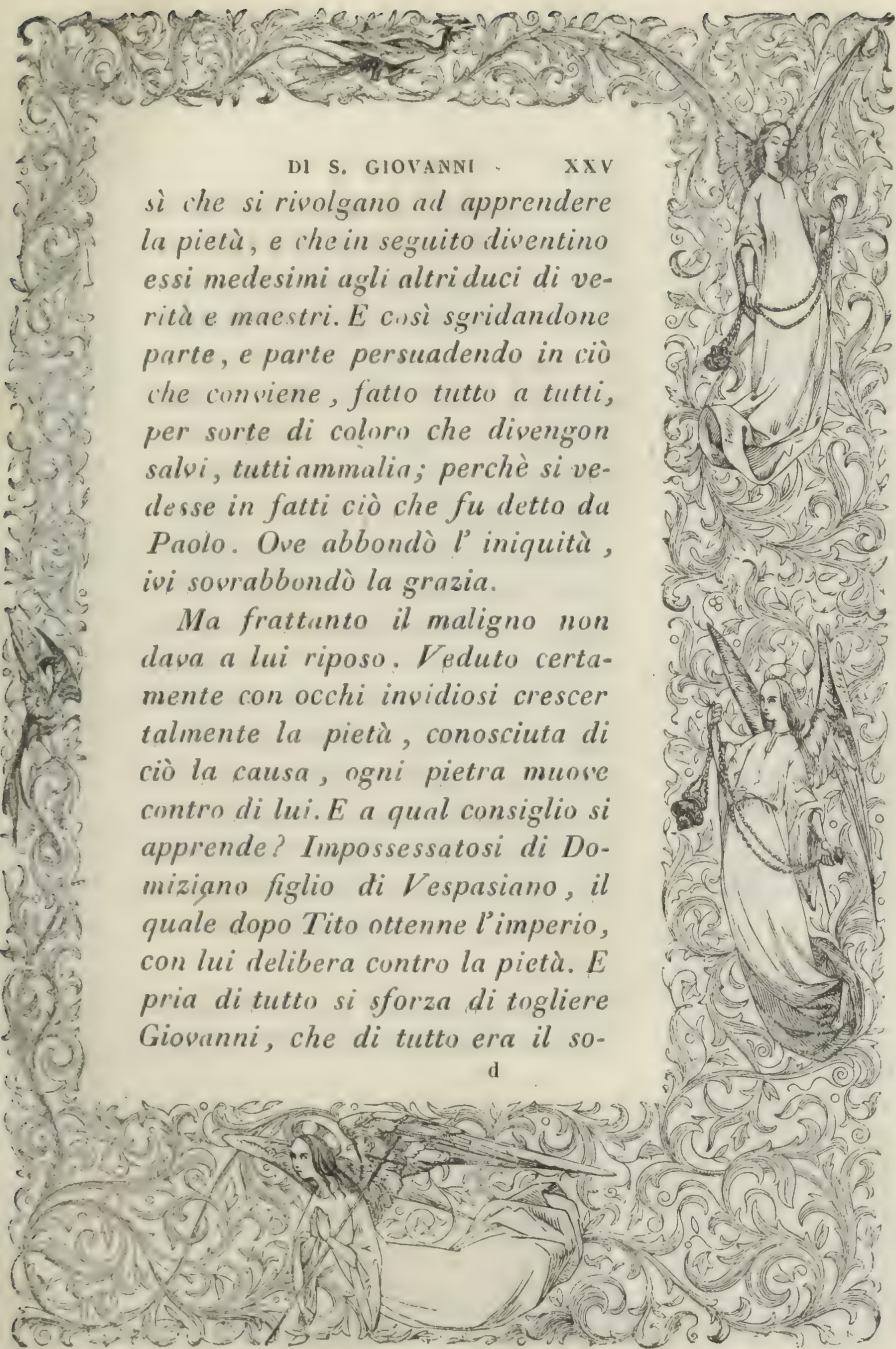 DI S. GIOVANNI XXV
sì che si rivolgano ad apprendere
la pietà, e che in seguito diventino
essi medesimi agli altri duci di ve-
rità e maestri. E così sgridandone
parte, e parte persuadendo in ciò
che conviene, fatto tutto a tutti,
per sorte di coloro che divengon
salvi, tutti ammalia; perchè si ve-
desse in fatti ciò che fu detto da
Paolo. Ove abbondò l' iniquità,
ivi sovrabbondò la grazia.
Ma frattanto il maligno non
dava a lui riposo. Veduto certa-
mente con occhi invidiosi crescer
talmente la pietà, conosciuta di
ciò la causa, ogni pietra muove
contro di lui. E a qual consiglio si
apprende? Impossessatosi di Do-
miziano figlio di Vespasiano, il
quale dopo Tito ottenne l'imperio,
con lui delibera contro la pietà. E
pria di tutto si sforza di togliere
Giovanni, che di tutto era il so-
d